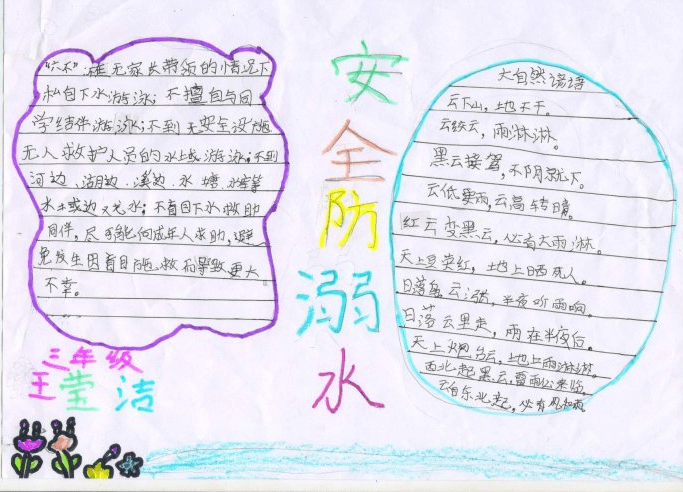 "六不"准无家长带领的情况下
私自下水游泳；不擅自与同
学结伴游泳；不到无安全设施
无人救护人员的水域游泳；不到
河边、湖边、溪边、水塘、水库等
水；不盲目下水救助
同伴，尽可能向成年人求助，避
免发生因盲目施救而导致更大
不幸。
三年级
王莹洁
安
全
防
溺
水
大自然谚语
云下山，地不干。
云绞云，雨淋淋。
黑云接驾，不阴就下。
云低要雨，云高转晴。
红云变黑云，必有大雨淋。
天上豆荚红，地上晒死人。
日落乌云涨，半夜听雨响。
日落云里走，雨在半夜后。
天上炮台云，地上雨淋淋。
西北起黑云，雷雨必来临。
云自东北起，必有风和雨